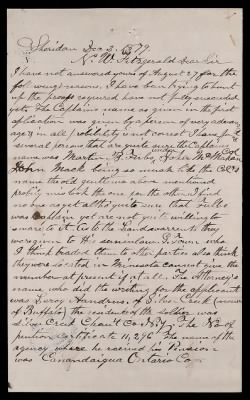 Sheridan Dec 2. 1879.
N. W. Fitzgerald Dear Sir
I have not answered yours of August 27 for the
following reasons, I have been trying to hunt
up the proofs required have not fully succeeded
yet. The Captains name as given in the first
application was given by a person of very advanced
age & in all probility is not correct I have found
several persons that are quite sure the Captains
name was Martin B. Tubs, under Col John McMahan
John Mack being so much like the Col's
name the old gentleman above mentioned
probly mistook the one for the other. I find
no one as yet although quite sure Tubbs
was Captain yet are not quite willing to
swear to it. As to the Landwarrents they
were given to His son
I think traded them to other parties also think
they were located in Minnesota cannot give the
number at present if at all. The Attorney's
name who did the writing for the applicant
was Leroy Andrus, of Silver Creek (now
of Buffalo) the residence of the soldier was
Silver Creek Chaut Co N.Y. The No of
pention certificate 11,296 The name of the
agency where he received his Pension
was Canandaigua Ontario Co